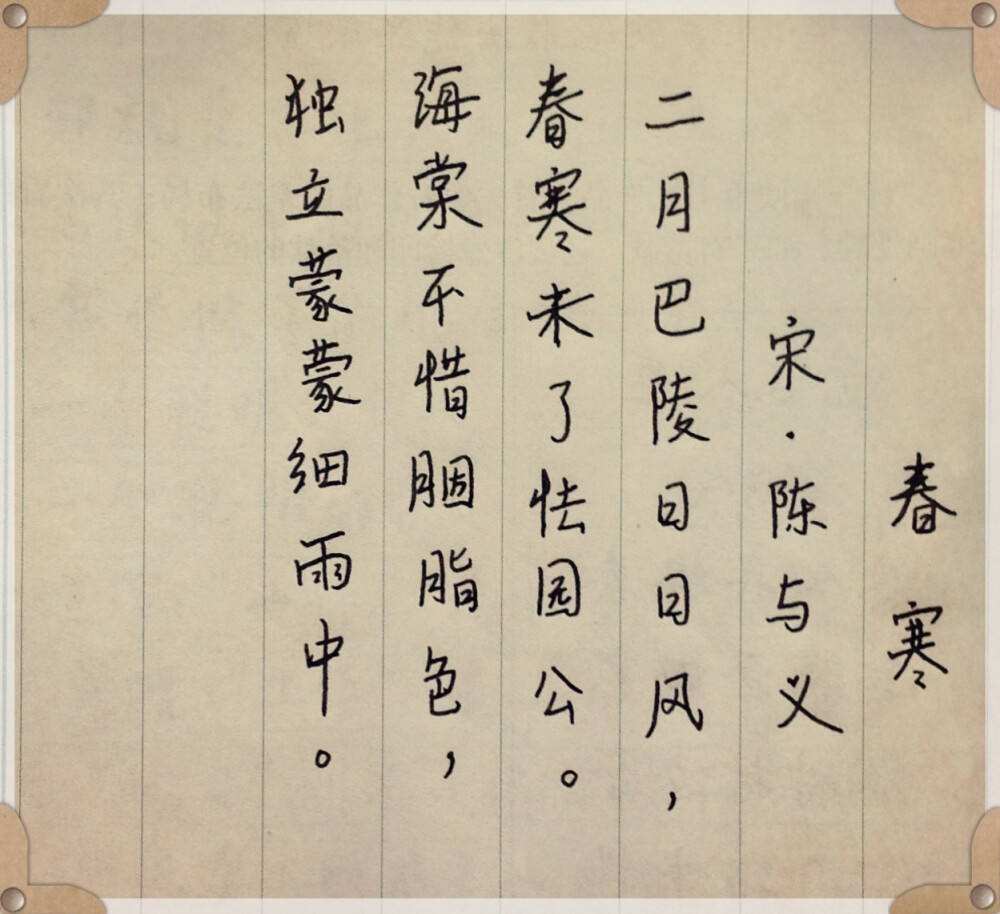 春寒
宋·陈与义
二月巴陵日日风，
春寒未了怯园公。
海棠不惜胭脂色，
独立蒙蒙细雨中。